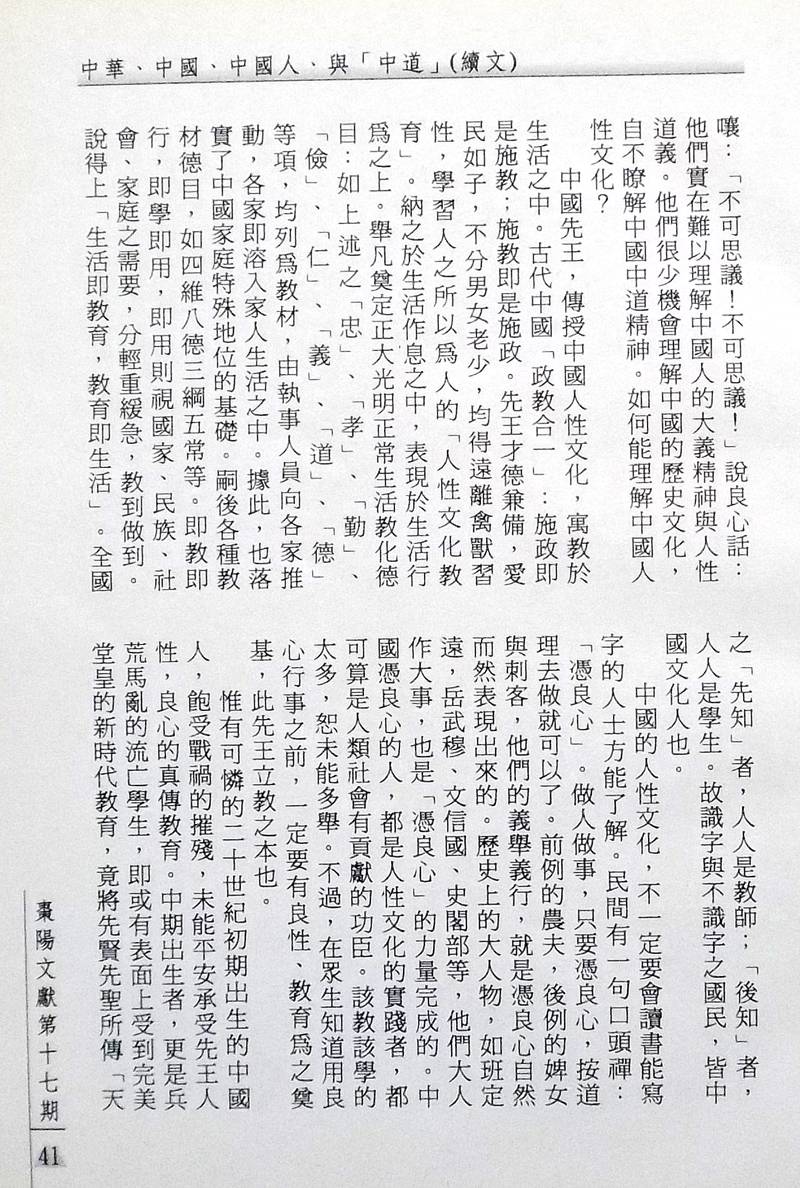 中華、中國、中國人、與「中道」(續文)
嚷：「不可思議！不可思議！」說良心話：
他們實在難以理解中國人的大義精神與人性
道義。他們很少機會理解中國的歷史文化，
自不瞭解中國中道精神。如何能理解中國人
性文化？
中國先王，傳授中國人性文化，寓教於
生活之中。古代中國「政教合一」：施政即
是施教；施教即是施政。先王才德兼備，愛
民如子，不分男女老少，均得遠離禽獸習
性，學習人之所以爲人的「人性文化教
育」。納之於生活作息之中，表現於生活行
爲之上。舉凡奠定正大光明正常生活教化德
目：如上述之「忠」、「孝」、「勤」、
「儉」、「仁」、「義」、「道」、「德」
等項，均列爲教材，由執事人員向各家推
動，各家即溶入家人生活之中。據此，也落
實了中國家庭特殊地位的基礎。嗣後各種教
材德目，如四維八德三綱五常等。即教即
行，即學即用，即用則視國家、民族、社
會、家庭之需要，分輕重緩急，教到做到。
說得上「生活即教育，教育即生活」。全國
之「先知」者，人人是教師；「後知」者，
人人是學生。故識字與不識字之國民，皆中
國文化人也。
中國的人性文化，不一定要會讀書能寫
字的人士方能了解。民間有一句口頭禪：
「憑良心」。做人做事，只要憑良心，按道
理去做就可以了。前例的農夫，後例的婢女
與刺客，他們的義舉義行，就是憑良心自然
而然表現出來的。歷史上的大人物，如班定
遠，岳武穆、文信國、史閣部等，他們大人
作大事，也是「憑良心」的力量完成的。中
國憑良心的人，都是人性文化的實踐者，都
可算是人類社會有貢獻的功臣。該教該學的
太多，恕未能多舉。不過，在眾生知道用良
心行事之前，一定要有良性、教育爲之奠
基，此先王立教之本也。
惟有可憐的二十世紀初期出生的中國
人，飽受戰禍的摧殘，未能平安承受先王人
性，良心的真傳教育。中期出生者，更是兵
荒馬亂的流亡學生，即或有表面上受到完美
堂皇的新時代教育，竟將先賢先聖所傳「天
棗陽文獻第十七期
41